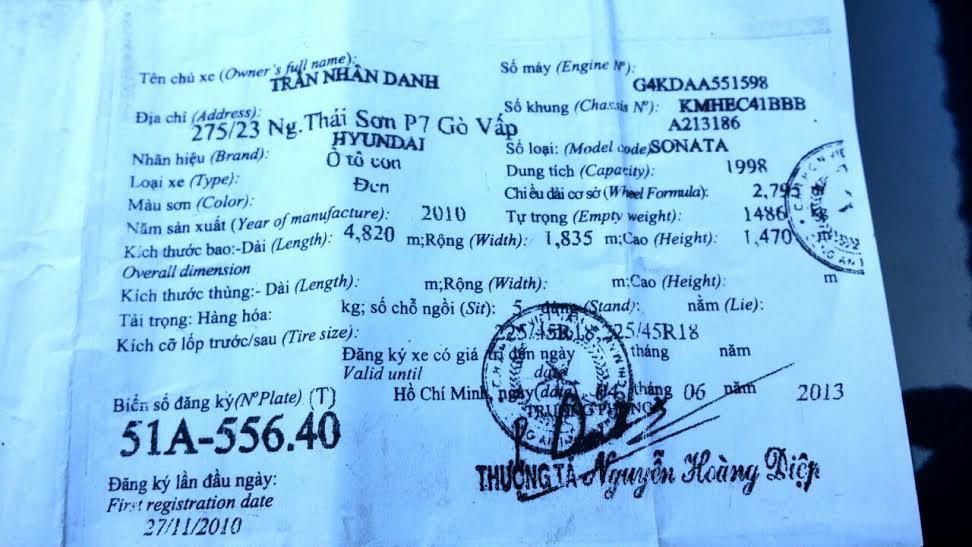 Tên chủ xe (Owner's full name): TRẦN NHÂN DANH
Số máy (Engine Nº): G4KDAA551598
Địa chỉ (Address): 275/23 Ng.Thái Sơn P7 Gò Vấp
Số khung (Chassis Nº): KMHEC41BBB
A213186
Nhãn hiệu (Brand): HYUNDAI
Số loại: (Model code) SONATA
Loại xe (Type): Ô tô con
Dung tích (Capacity): 1998
Màu sơn (Color): Đen
Chiều dài cơ sở (Wheel Formula): 2,795
Năm sản xuất (Year of manufacture): 2010
Tự trọng (Empty weight): 1486
Kích thước bao:-Dài (Length): 4,820 m;Rộng (Width): 1,835 m;Cao (Height): 1,470
Overall dimension
Kích thước thùng:- Dài (Length): m;Rộng (Width): m;Cao (Height): m
Tải trọng: Hàng hóa: kg; số chỗ ngồi (Sit): 5 đứng (Stand): nằm (Lie):
Kích cỡ lốp trước/sau (Tire size): 225/45R18 225/45R18
Đăng ký xe có giá trị đến ngày tháng năm
Valid until date
Biển số đăng ký(NºPlate) (T)
Hồ Chí Minh, ngày(date) 04 tháng 06 năm 2013
51A-556.40
TRƯỞNG PHÒNG
THƯỢNG TÁ Nguyễn Hoàng Diệp
Đăng ký lần đầu ngày:
First registration date
27/11/2010